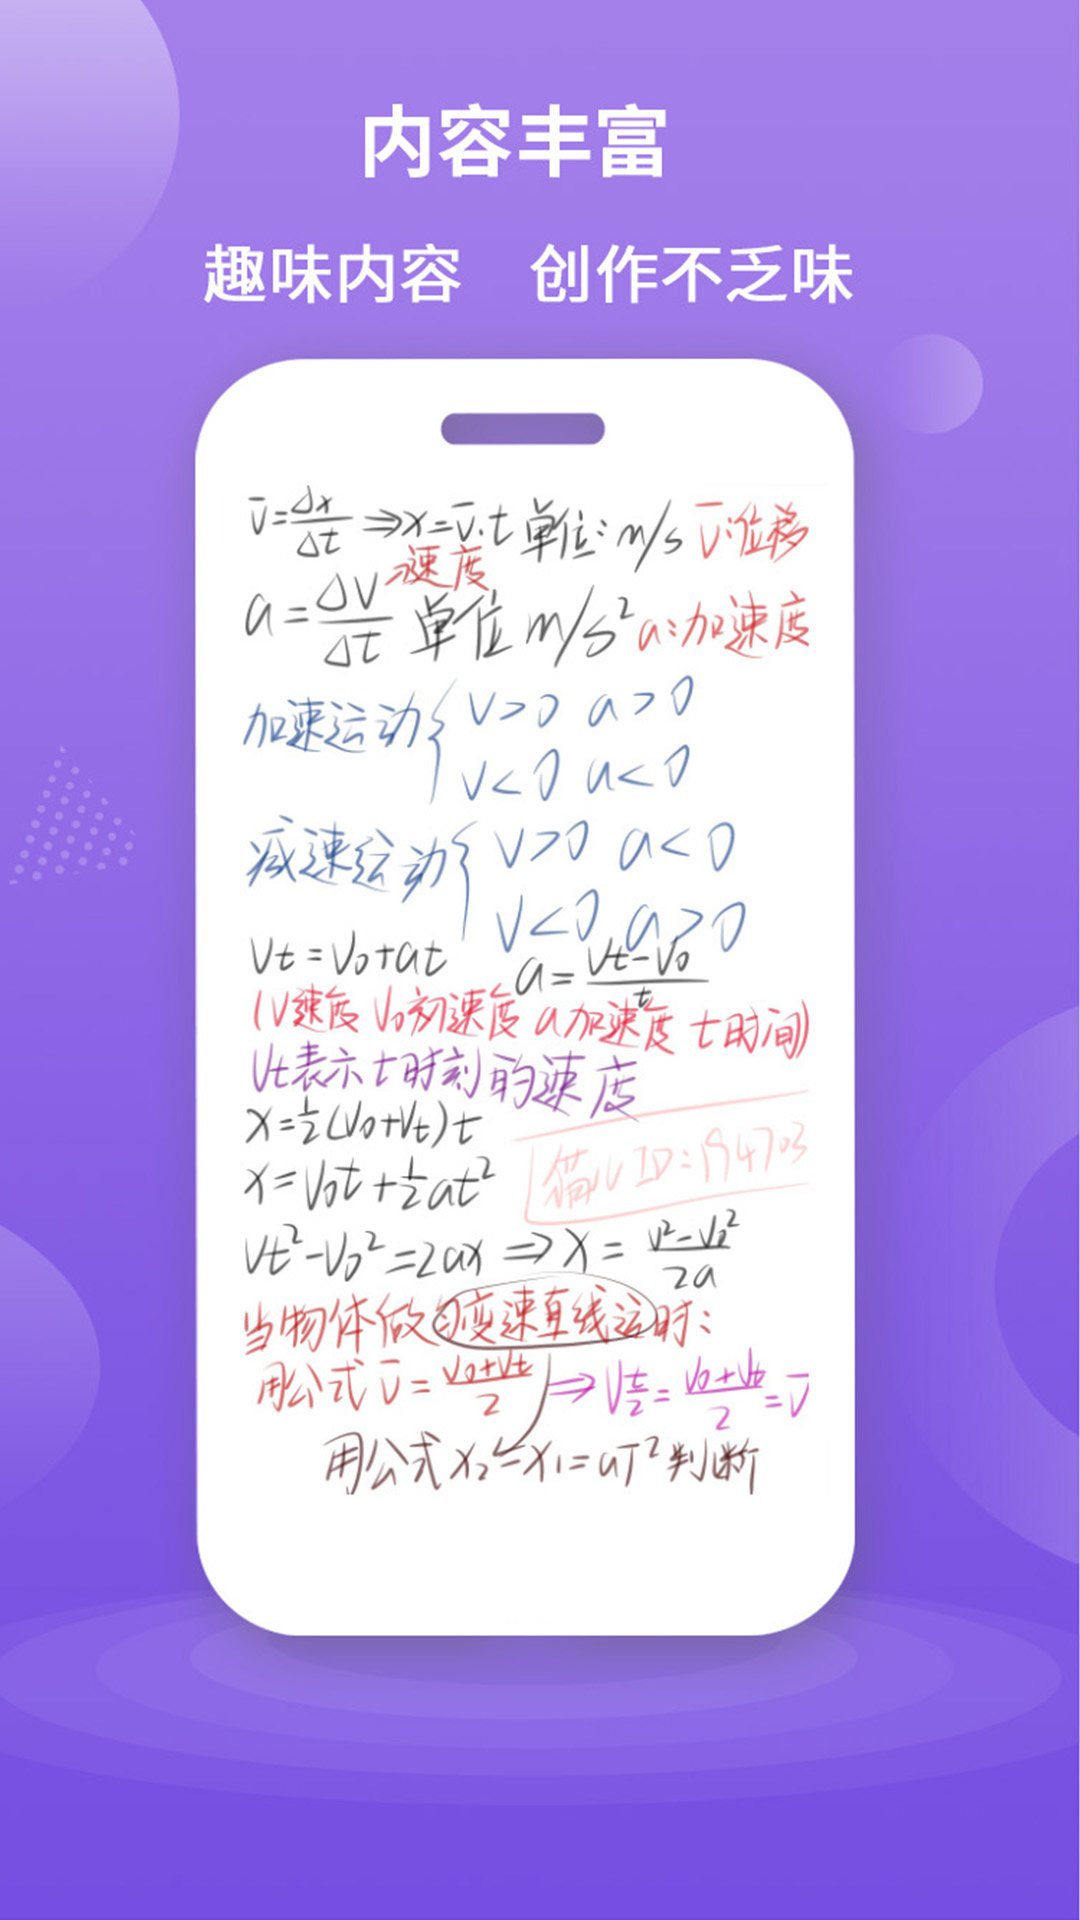 内容丰富
趣味内容 创作不乏味
v̄=Δx/Δt ⇒x=v̄·t 单位:m/s v̄:位移
→速度
a=ΔV/Δt 单位 m/s² a:加速度
加速运动{ v>0 a>0
v<0 a<0
减速运动{ v>0 a<0
v<0 a>0
Vt=V₀+at a=Vt-V₀/t
(V速度 V₀初速度 a加速度 t时间)
Vt表示t时刻的速度
x=½(V₀+Vt)t
x=V₀t+½at²
ID:194703
Vt²-V₀²=2ax ⇒ X=V²-V₀²/2a
当物体做匀变速直线运时:
用公式 v̄=V₀+Vt/2 ⇒Vt/2=V₀+Vt/2=v̄
用公式 x₂-x₁=aT²判断